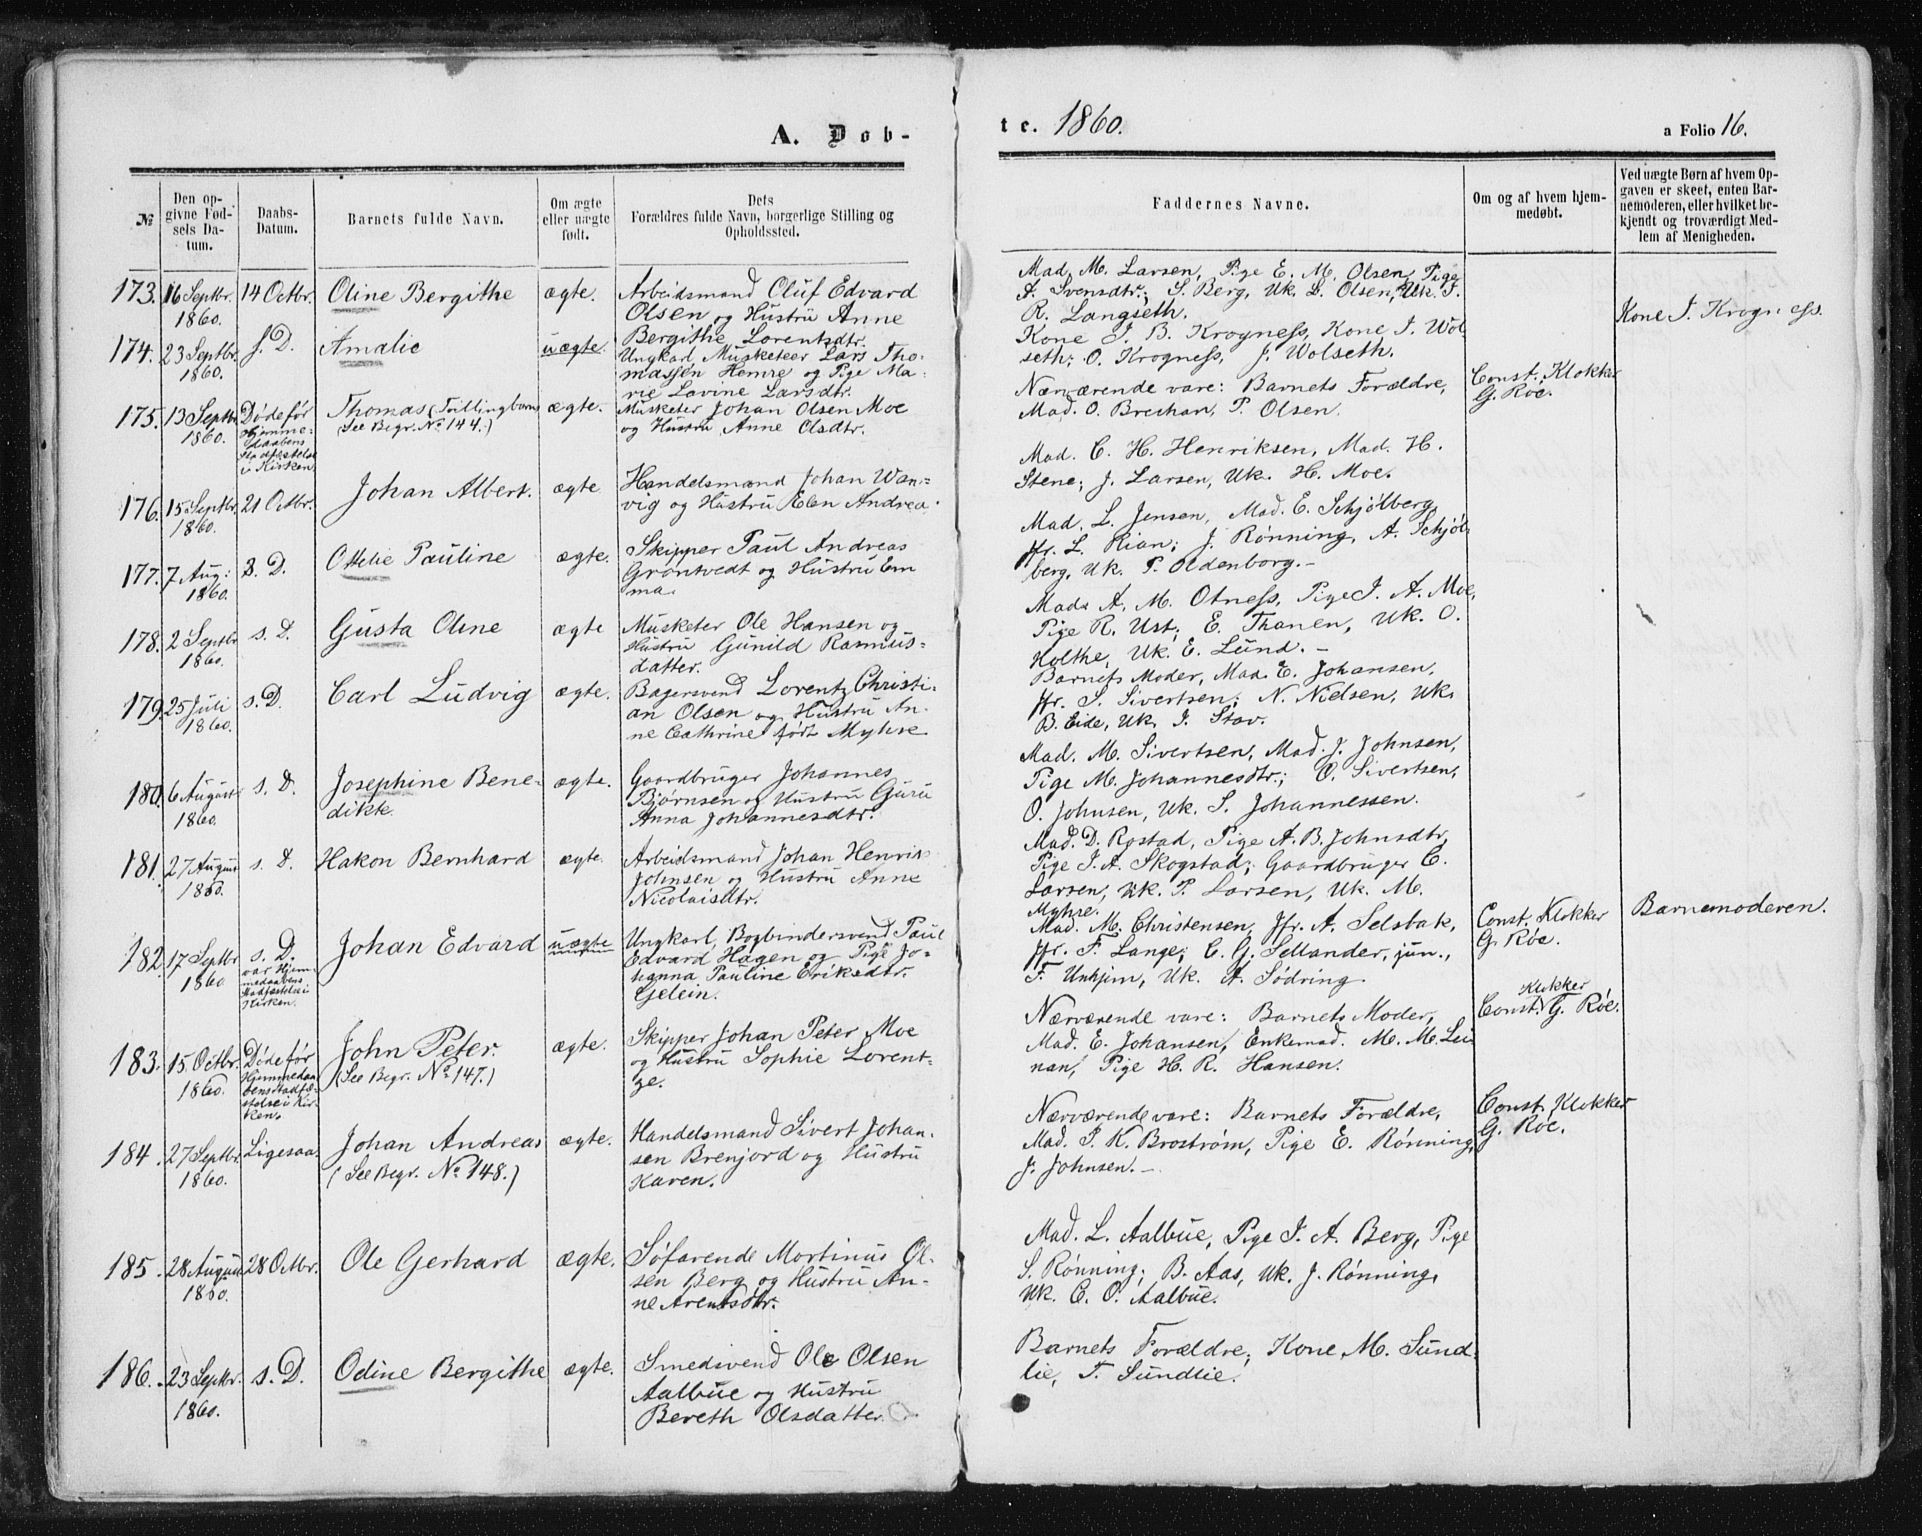 A. Døb-
№
Den op-
givne Fød-
sels Da-
tum.
Daabs-
Datum.
Barnets fulde Navn.
Om ægte
eller uægte
født.
Dets
Forældres fulde Navn, borgerlige Stilling og
Opholdssted.
173. 16 Septbr. 1860. 14 Octbr. Oline Bergithe ægte. Arbeidsmand Oluf Edvard
Olsen og Hustru Anne
Bergithe Lorentsdtr.
174. 23 Septbr. 1860. s. D. Amalie uægte. Ungkarl Musketeer Lars Tho-
massen Hemre og Pige Ma-
rie Lovine Larsdtr.
175. 13 Septbr. 1860. Døde før
Hjemme-
daabens
Stadfæstelse
i Kirken. Thomas (Tvillingbarn)
(See Begr. No 144.) ægte. Musketer Johan Olsen Moe
og Hustru Anne Olsdtr.
176. 15 Septbr. 1860. 21 Octbr. Johan Albert. ægte Handelsmand Johan Wan-
vig og Hustru Elen Andrea
177. 7 Aug: 1860. s. D. Ottelie Pauline ægte. Skipper Paul Andreas
Grontvedt og Hustru Em
ma.
178. 2 Septbr 1860. s. D. Gusta Oline ægte Musketer Ole Hansen og
Hustru Gunild Rasmus-
datter.
179. 25 Juli 1860. s. D. Carl Ludvig ægte. Bagersvend Lorentz Christi-
an Olsen og Hustru An-
ne Cathrine født Myhre
180. 6 August 1860. s. D. Josephine Bene-
dikte. ægte. Gaardbruger Johannes
Bjørnsen og Hustru Guru
Anna Johannesdtr.
181. 27 August 1860. s. D. Hakon Bernhard ægte. Arbeidsmand Johan Henrik
Johnsen og Hustru Anne
Nicolaisdtr.
182. 17 Septbr 1860 s. D.
var Hjem-
medaabens
Stadfæstelse i
Kirken. Johan Edvard uægte Ungkarl, Bogbindersvend Paul
Edvard Hagen og Pige Jo-
hanna Pauline Eriksdtr.
Gelein.
183. 15 Octbr. 1860. Døde før
Hjemmedaa-
bens Stadfæ-
stelse i Kir-
ken. John Peter.
(See Begr. No 147.) ægte. Skipper Johan Peter Moe
og Hustru Sophie Lorent-
ze.
184. 27 Septbr. 1860. Ligesaa. Johan Andreas
(See Begr. No 148.) ægte. Handelsmand Sivert Johan-
sen Brenjord og Hustru
Karen.
185. 28 August 1860. 28 Octbr. Ole Gerhard ægte. Søfarende Mortinus Ol-
sen Berg og Hustru An-
ne Arentsdtr.
186. 23 Septbr. 1860. s. D. Odine Bergithe ægte. Smedsvend Ole Olsen
Aalbue og Hustru
Bereth Olsdatter.
te. 1860.
a Folio 16.
Faddernes Navne.
Om og af hvem hjem-
medøbt.
Ved uægte Børn af hvem Op-
gaven er skeet, enten Bar-
nemoderen, eller hvilket be-
kjendt og troværdigt Med-
lem af Menigheden.
Mad. M. Larsen, Pige E. M. Olsen, Pige
A. Svensdtr.; S. Berg, Uk. L. Olsen, Uk. J.
R. Langseth.
Kone J. B. Krogness, Kone J. Wol
seth; O. Krogness, J. Wolseth.
Kone J. Krogness.
Nærværende vare: Barnets Forældre,
Mad. O. Brechan, P. Olsen.
Const. Klokker
G. Röe.
Mad. C. H. Henriksen, Mad. H.
Stene; J. Larsen, Uk. H. Moe.
Mad. L. Jensen, Mad. E. Schjølberg,
Jfr. L. Rian; J. Rønning, A. Schjøl
berg, Uk. P. Oldenborg.-
Mad. A. M. Otness, Pige J. A. Moe,
Pige R. Ust; E. Thanen, Uk. O.
Holthe, Uk. E. Lund.-
Barnets Moder, Mad. E. Johansen,
Jfr. S. Sivertsen; N. Nielsen, Uk.
B. Eide, Uk. J. Stav.
Mad. M. Sivertsen, Mad. J. Johnsen,
Pige M. Johannesdtr.; O. Sivertsen,
O. Johnsen, Uk. S. Johannessen.
Mad. D. Rostad, Pige A. B. Johnsdtr,
Pige J. A. Skogstad; Gaardbruger E.
Larsen, Uk. P. Larsen, Uk. M.
Myhre.
Mad. M. Christensen, Jfr. A. Selsbak,
Jfr. F. Lange; C. G. Sellander, jun.,
F. Unhjem, Uk. A. Södring.
Const. Klokker
G. Röe.
Barnemoderen.
Nærværende vare: Barnets Moder,
Mad. E. Johansen, Enkemad. M. M. Lei
nan, Pige H. R. Hansen.
Klokker
Const. G. Röe.
Nærværende vare: Barnets Forældre,
Mad. J. K. Broström, Pige E. Rønning,
J. Johnsen.-
Const. Klokker
G. Röe.
Mad. L. Aalbue, Pige J. A. Berg, Pige
S. Rønning; B. Aas, Uk. J. Rønning,
Uk. E. O. Aalbue.
Barnets Forældre; Kone M. Sund
lie, T. Sundlie.